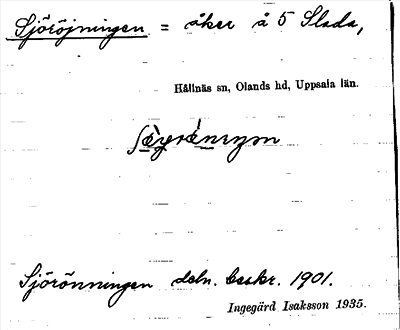 Sjöröjningen = åker å 5 Slada,
Hållnäs sn, Olands hd, Uppsala län.
Sjörönningen daln. beskr. 1901.
Ingegärd Isaksson 1935.